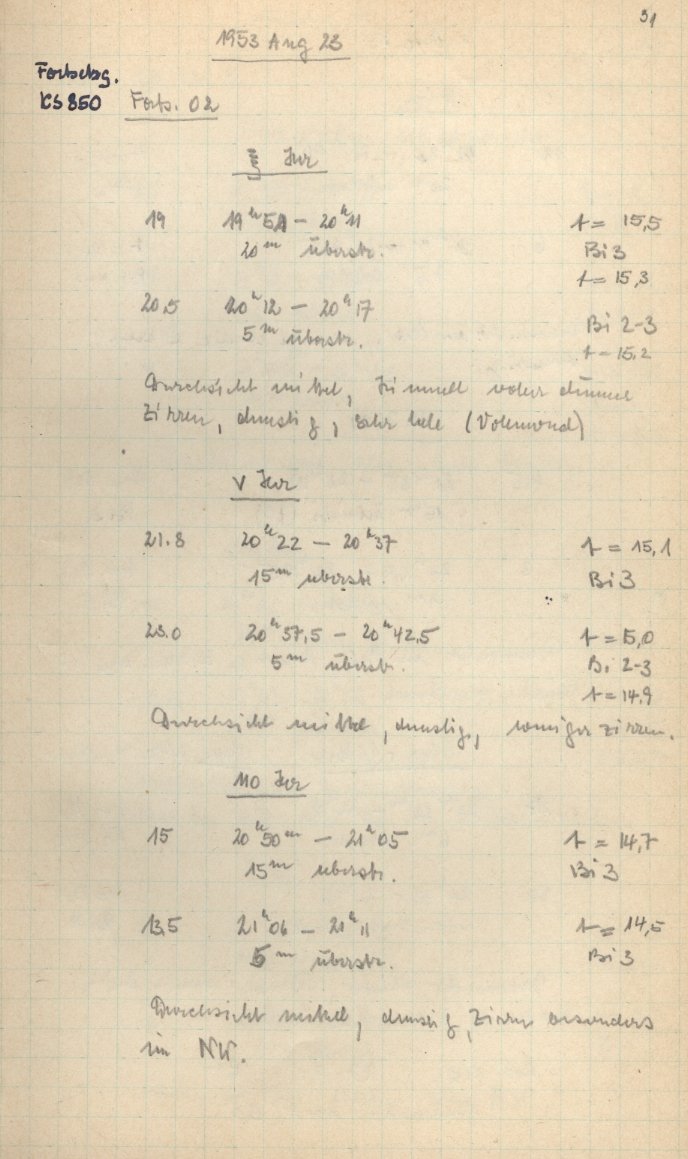 31
1953 Aug 23
Fortsetzg.
KS 850 Forts. 02
ξ Her
19 19ʰ51 – 20ʰ11 t = 15,5
20ᵐ überstr. Bi 3
t = 15,3
20,5 20ʰ12 – 20ʰ17 Bi 2-3
5ᵐ überstr. t = 15,2
Durchsicht mittel, Himmel voller dünner
Zirren, dunstig, sehr hell (Vollmond)
ν Her
21.8 20ʰ22 – 20ʰ37 t = 15,1
15ᵐ überstr. Bi 3
23.0 20ʰ37,5 – 20ʰ42,5 t = 15,0
5ᵐ überstr. Bi 2-3
t = 14,9
Durchsicht mittel, dunstig, weniger Zirren.
110 Her
15 20ʰ50ᵐ – 21ʰ05 t = 14,7
15ᵐ überstr. Bi 3
13.5 21ʰ06 – 21ʰ11 t = 14,5
5ᵐ überstr. Bi 3
Durchsicht mittel, dunstig, Zirren besonders
im NW.